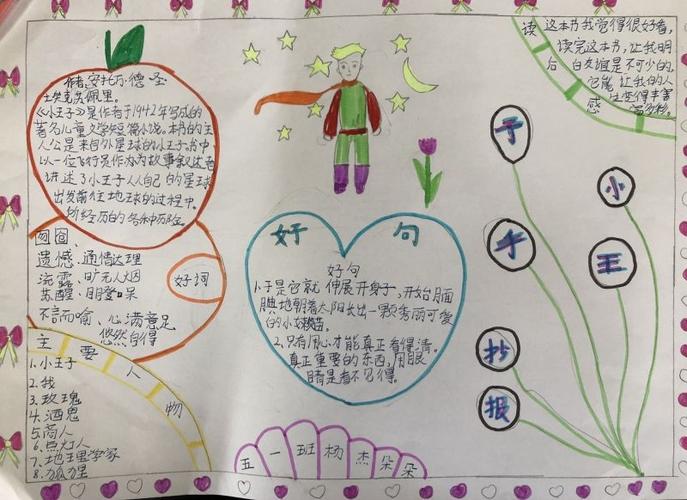 作者：安托万·德·圣
埃克苏佩里。
《小王子》是作者于1942年写成的
著名儿童文学短篇小说。本书的主
人公是来自外星球的小王子。书中
以一位飞行员作为故事叙述者
讲述了小王子从自己的星球
出发前往地球的过程中，
所经历的各种历险。
好词
囫囵、
遗憾、通情达理
流露、旷无人烟
苏醒、目瞪口呆
不言而喻、心满意足
悠然自得
主要人物
1.小王子
2.我
3.玫瑰
4.酒鬼
5.商人
6.点灯人
7.地理学家
8.狐狸
好句
好句
于是它就伸展开身子，开始腼
腆地朝着太阳长出一颗秀丽可爱
的小嫩苗。
2.只有用心才能真正看得清。
真正重要的东西，用眼
睛是看不见得。
读后感
这本书我觉得很好看，
读完这本书，让我明
白友谊是不可少的
它能让我的人
生变得丰富
多彩。
小
王
子
手
抄
报
五一班杨杰朵朵